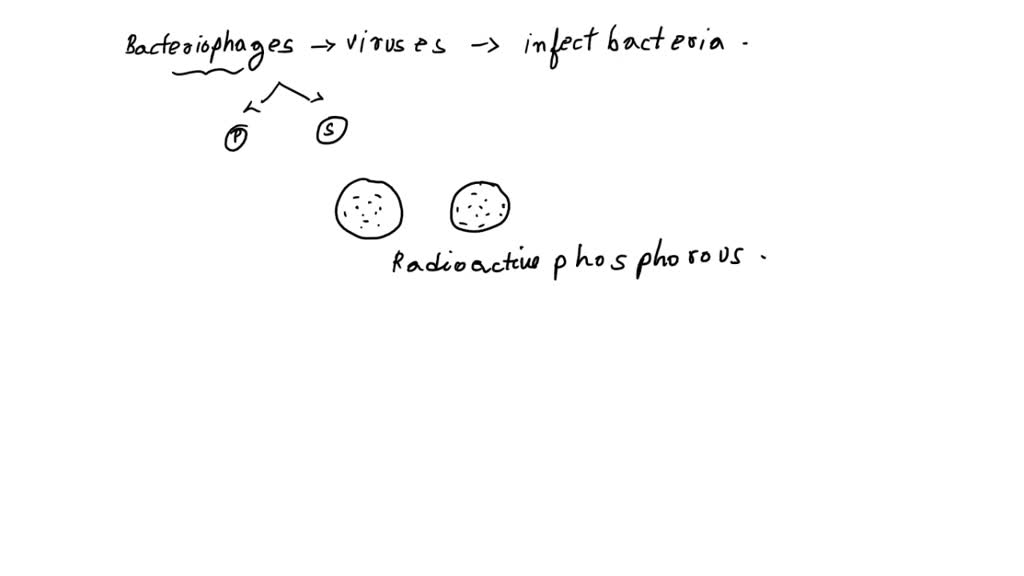 Bacteriophages → viruses → infect bacteria .
P S
Radioactive phosphorous .